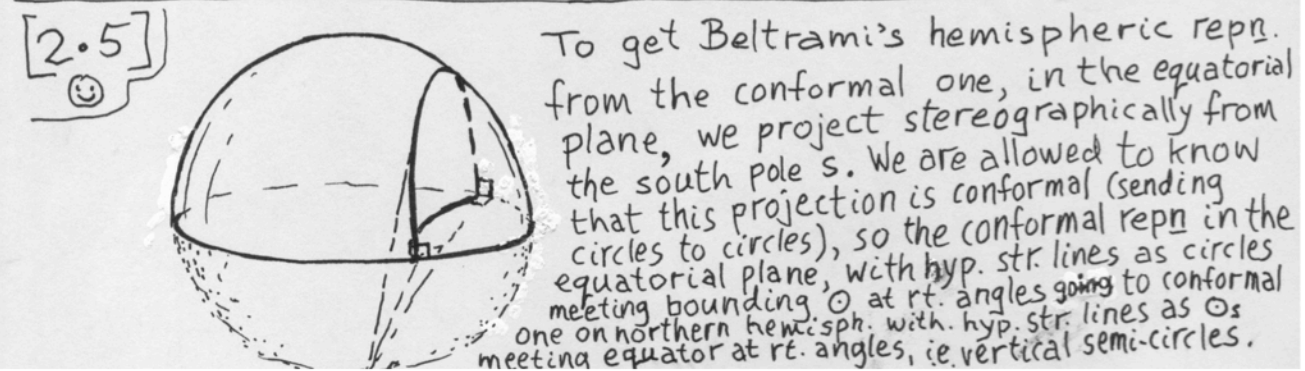 [2.5]
To get Beltrami's hemispheric repn.
from the conformal one, in the equatorial
plane, we project stereographically from
the south pole S. We are allowed to know
that this projection is conformal (sending
circles to circles), so the conformal repn in the
equatorial plane, with hyp. str. lines as circles
meeting bounding ⊙ at rt. angles going to conformal
one on northern hemisph. with. hyp. str. lines as ⊙s
meeting equator at rt. angles, ie. vertical semi-circles.